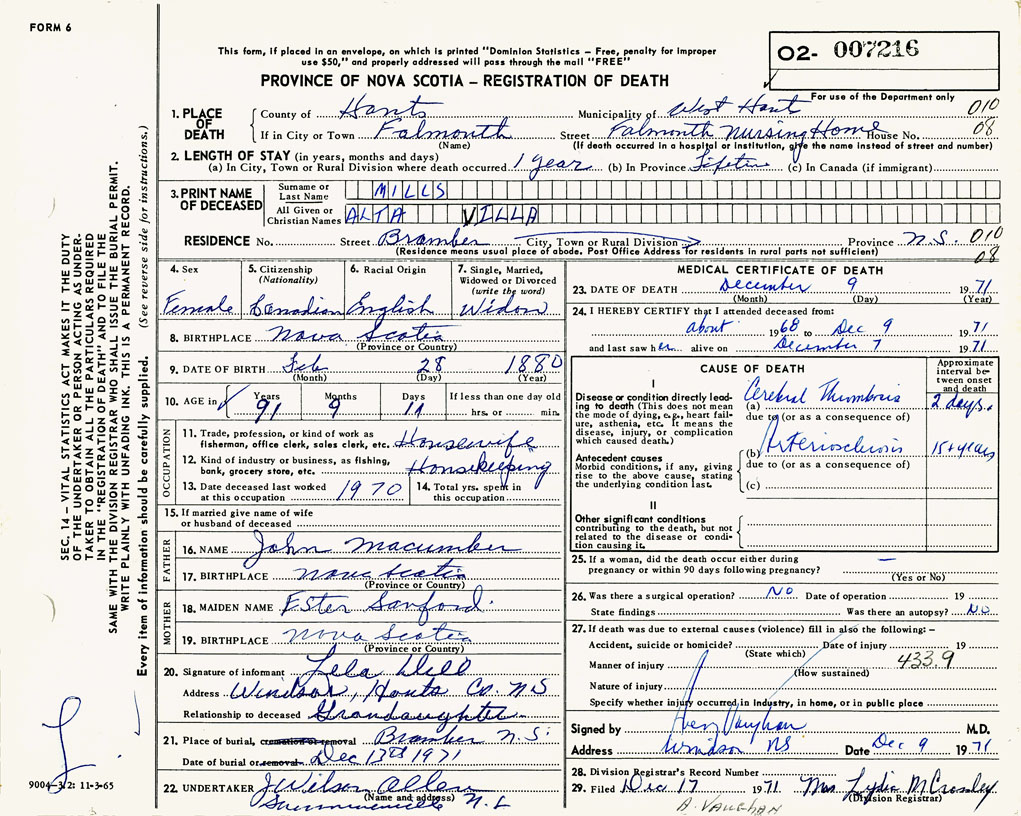 FORM 6
This form, if placed in an envelope, on which is printed "Dominion Statistics – Free, penalty for improper
use $50," and properly addressed will pass through the mail "FREE"
O2- 007216
PROVINCE OF NOVA SCOTIA – REGISTRATION OF DEATH
For use of the Department only
1. PLACE OF DEATH County of Hants Municipality of West Hant 010
If in City or Town Falmouth Street Falmouth Nursing Home House No. 08
(Name) (If death occurred in a hospital or institution, give the name instead of street and number)
2. LENGTH OF STAY (in years, months and days)
(a) In City, Town or Rural Division where death occurred 1 year (b) In Province Lifetime (c) In Canada (if immigrant)
3. PRINT NAME OF DECEASED Surname or Last Name MILLS
All Given or Christian Names ALTA VILLA
RESIDENCE No. Street Bramber City, Town or Rural Division Province N.S. 010
(Residence means usual place of abode. Post Office Address for residents in rural parts not sufficient) 08
4. Sex Female
5. Citizenship (Nationality) Canadian
6. Racial Origin English
7. Single, Married, Widowed or Divorced (write the word) Widow
8. BIRTHPLACE Nova Scotia
(Province or Country)
9. DATE OF BIRTH Feb 28 1880
(Month) (Day) (Year)
10. AGE in Years Months Days If less than one day old
91 9 11 hrs. or min.
OCCUPATION
11. Trade, profession, or kind of work as
fisherman, office clerk, sales clerk, etc. Housewife
12. Kind of industry or business, as fishing,
bank, grocery store, etc. Housekeeping
13. Date deceased last worked at this occupation 1970
14. Total yrs. spent in this occupation
15. If married give name of wife
or husband of deceased
FATHER
16. NAME John Macumber
17. BIRTHPLACE Nova Scotia
(Province or Country)
MOTHER
18. MAIDEN NAME Ester Sanford
19. BIRTHPLACE Nova Scotia
(Province or Country)
20. Signature of informant Lela Dill
Address Windsor, Hants Co. NS
Relationship to deceased Grandaughter
21. Place of burial, cremation or removal Bramber N.S.
Date of burial or removal Dec 13th 1971
22. UNDERTAKER J Wilson Allen
(Name and address) N.S
MEDICAL CERTIFICATE OF DEATH
23. DATE OF DEATH December 9 19 71
(Month) (Day) (Year)
24. I HEREBY CERTIFY that I attended deceased from:
about 1968 to Dec 9 19 71
and last saw her alive on December 7 19 71
CAUSE OF DEATH
Approximate interval between onset and death
I
Disease or condition directly leading to death (This does not mean the mode of dying, e.g., heart failure, asthenia, etc. It means the disease, injury, or complication which caused death.)
(a) Cerebral Thrombosis 2 days.
due to (or as a consequence of)
Antecedent causes
Morbid conditions, if any, giving rise to the above cause, stating the underlying condition last.
(b) Arteriosclerosis 15+ years
due to (or as a consequence of)
(c)
II
Other significant conditions
contributing to the death, but not
related to the disease or condition causing it.
25. If a woman, did the death occur either during
pregnancy or within 90 days following pregnancy? –
(Yes or No)
26. Was there a surgical operation? No Date of operation 19
State findings Was there an autopsy? No
27. If death was due to external causes (violence) fill in also the following: –
Accident, suicide or homicide? Date of injury 19
(State which)
Manner of injury 433.9
(How sustained)
Nature of injury
Specify whether injury occurred in industry, in home, or in public place
Signed by Vaughan M.D.
Address Windsor NS Date Dec 9 19 71
28. Division Registrar's Record Number
29. Filed Dec 17 19 71 Mrs. Lydia M Crossley
(Division Registrar)
A. VAUGHAN
SEC. 14 – VITAL STATISTICS ACT MAKES IT THE DUTY
OF THE UNDERTAKER OR PERSON ACTING AS UNDER-
TAKER TO OBTAIN ALL THE PARTICULARS REQUIRED
IN THE "REGISTRATION OF DEATH" AND TO FILE THE
SAME WITH THE DIVISION REGISTRAR WHO SHALL ISSUE THE BURIAL PERMIT.
WRITE PLAINLY WITH UNFADING INK. THIS IS A PERMANENT RECORD.
Every item of information should be carefully supplied. (See reverse side for instructions.)
9004-3/2: 11-3-65